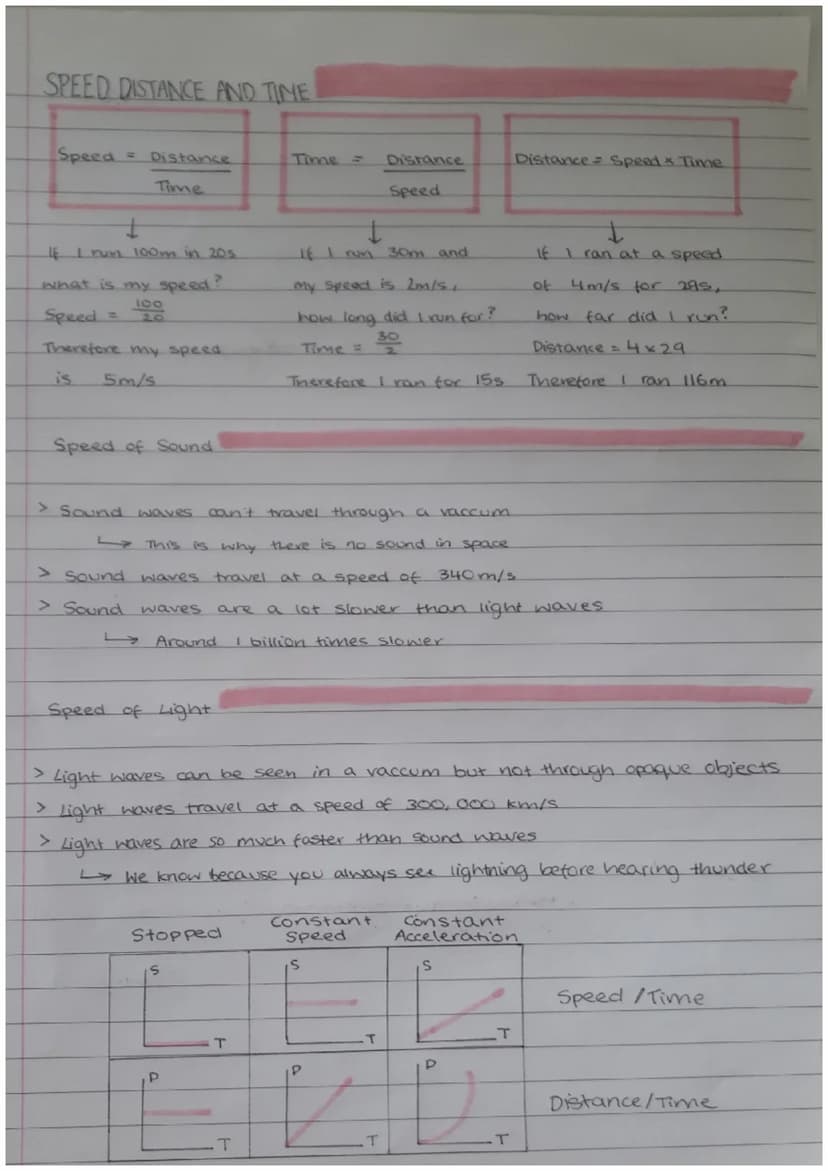 SPEED DISTANCE AND TIME
Speed = Distance / Time
Time = Distance / Speed
Distance = Speed × Time
If I run 100m in 20s
what is my speed?
Speed = 100/20
Therefore my speed
is 5m/s
If I run 30m and
my speed is 2m/s,
how long did I run for?
Time = 30/2
Therefore I ran for 15s
If I ran at a speed
of 4m/s for 29s,
how far did I run?
Distance = 4 × 29
Therefore I ran 116m
Speed of Sound
> Sound waves can't travel through a vaccum
↳ This is why there is no sound in space
> Sound waves travel at a speed of 340m/s
> Sound waves are a lot slower than light waves
↳ Around 1 billion times slower
Speed of Light
> Light waves can be seen in a vaccum but not through opaque objects
> Light waves travel at a speed of 300,000 km/s
> Light waves are so much faster than sound waves
↳ We know because you always see lightning before hearing thunder
Stopped
Constant
Speed
Constant
Acceleration
S
T
S
T
S
T
Speed /Time
D
T
D
T
D
T
Distance/Time